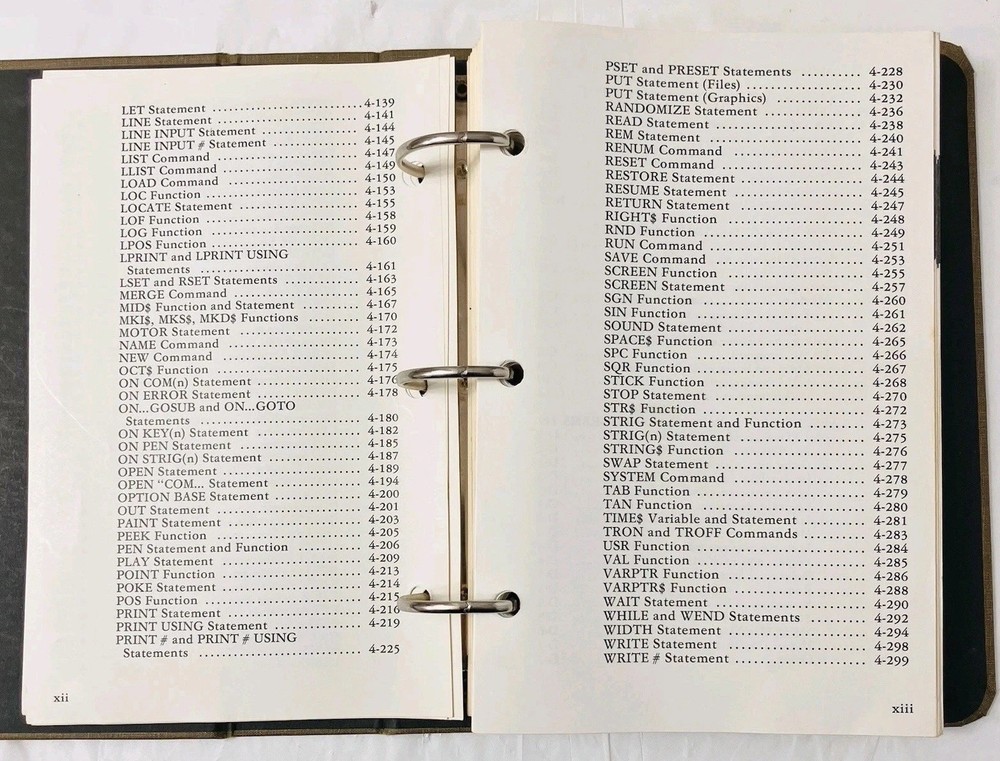 LET Statement .......................... 4-139
LINE Statement ......................... 4-141
LINE INPUT Statement ................... 4-144
LINE INPUT # Statement ................. 4-145
LIST Command ........................... 4-147
LLIST Command .......................... 4-149
LOAD Command ........................... 4-150
LOC Function ........................... 4-153
LOCATE Statement ....................... 4-155
LOF Function ........................... 4-158
LOG Function ........................... 4-159
LPOS Function .......................... 4-160
LPRINT and LPRINT USING
Statements ............................. 4-161
LSET and RSET Statements ............... 4-163
MERGE Command .......................... 4-165
MID$ Function and Statement ............ 4-167
MKI$, MKS$, MKD$ Functions ............. 4-170
MOTOR Statement ........................ 4-172
NAME Command ........................... 4-173
NEW Command ............................ 4-174
OCT$ Function .......................... 4-175
ON COM(n) Statement .................... 4-176
ON ERROR Statement ..................... 4-178
ON...GOSUB and ON...GOTO
Statements ............................. 4-180
ON KEY(n) Statement .................... 4-182
ON PEN Statement ....................... 4-185
ON STRIG(n) Statement .................. 4-187
OPEN Statement ......................... 4-189
OPEN “COM... Statement ................. 4-194
OPTION BASE Statement .................. 4-200
OUT Statement .......................... 4-201
PAINT Statement ........................ 4-203
PEEK Function .......................... 4-205
PEN Statement and Function ............. 4-206
PLAY Statement ......................... 4-209
POINT Function ......................... 4-213
POKE Statement ......................... 4-214
POS Function ........................... 4-215
PRINT Statement ........................ 4-216
PRINT USING Statement .................. 4-219
PRINT # and PRINT # USING
Statements ............................. 4-225
xii
PSET and PRESET Statements ............. 4-228
PUT Statement (Files) .................. 4-230
PUT Statement (Graphics) ............... 4-232
RANDOMIZE Statement .................... 4-236
READ Statement ......................... 4-238
REM Statement .......................... 4-240
RENUM Command .......................... 4-241
RESET Command .......................... 4-243
RESTORE Statement ...................... 4-244
RESUME Statement ....................... 4-245
RETURN Statement ....................... 4-247
RIGHT$ Function ........................ 4-248
RND Function ........................... 4-249
RUN Command ............................ 4-251
SAVE Command ........................... 4-253
SCREEN Function ........................ 4-255
SCREEN Statement ....................... 4-257
SGN Function ........................... 4-260
SIN Function ........................... 4-261
SOUND Statement ........................ 4-262
SPACE$ Function ........................ 4-265
SPC Function ........................... 4-266
SQR Function ........................... 4-267
STICK Function ......................... 4-268
STOP Statement ......................... 4-270
STR$ Function .......................... 4-272
STRIG Statement and Function ........... 4-273
STRIG(n) Statement ..................... 4-275
STRING$ Function ....................... 4-276
SWAP Statement ......................... 4-277
SYSTEM Command ......................... 4-278
TAB Function ........................... 4-279
TAN Function ........................... 4-280
TIME$ Variable and Statement ........... 4-281
TRON and TROFF Commands ................ 4-283
USR Function ........................... 4-284
VAL Function ........................... 4-285
VARPTR Function ........................ 4-286
VARPTR$ Function ....................... 4-288
WAIT Statement ......................... 4-290
WHILE and WEND Statements .............. 4-292
WIDTH Statement ........................ 4-294
WRITE Statement ........................ 4-298
WRITE # Statement ...................... 4-299
xiii